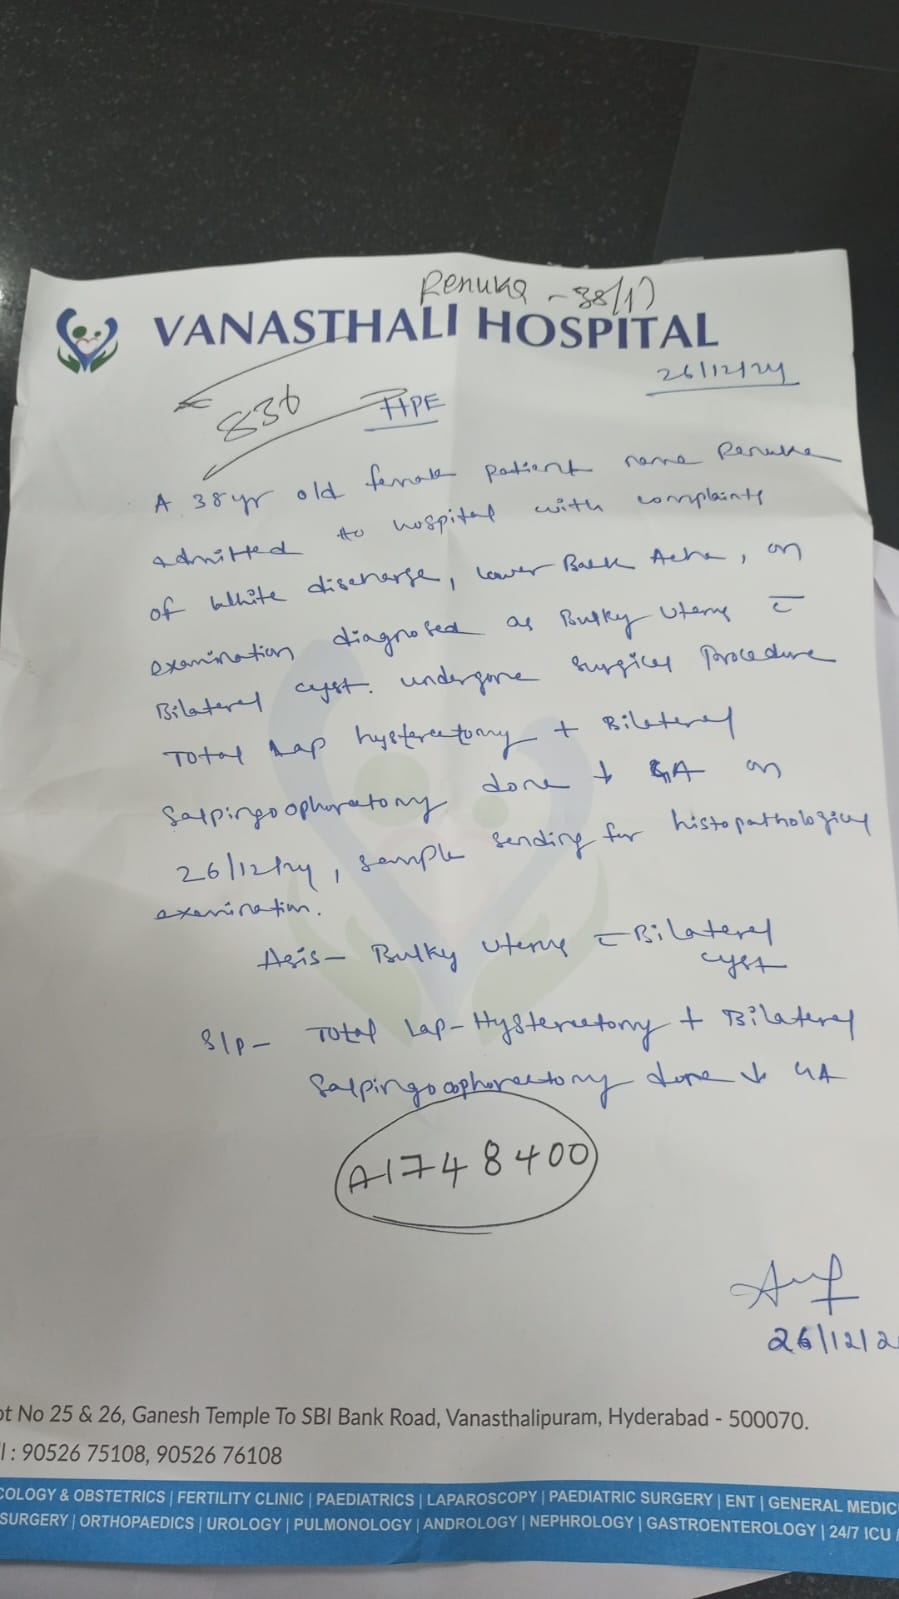 Renuka - 38/
VANASTHALI HOSPITAL
26/12/24
836
HPE
A 38yr old female patient name Renuka
admitted to hospital with complaints
of white discharge, lower Back Ache, on
examination diagnosed as Bulky Uterus c̄
Bilateral cyst. undergone surgical Procedure
Total Lap hysterectomy + Bilateral
Salpingoophorectomy done ↓ GA on
26/12/24, sample sending for histopathological
examination.
- Bulky Uterus c̄ Bilateral
cyst
S/p - Total Lap-Hysterectomy + Bilateral
Salpingoophorectomy done ↓ GA
A1748400
26/12/2
ot No 25 & 26, Ganesh Temple To SBI Bank Road, Vanasthalipuram, Hyderabad - 500070.
l : 90526 75108, 90526 76108
COLOGY & OBSTETRICS | FERTILITY CLINIC | PAEDIATRICS | LAPAROSCOPY | PAEDIATRIC SURGERY | ENT | GENERAL MEDIC
SURGERY | ORTHOPAEDICS | UROLOGY | PULMONOLOGY | ANDROLOGY | NEPHROLOGY | GASTROENTEROLOGY | 24/7 ICU